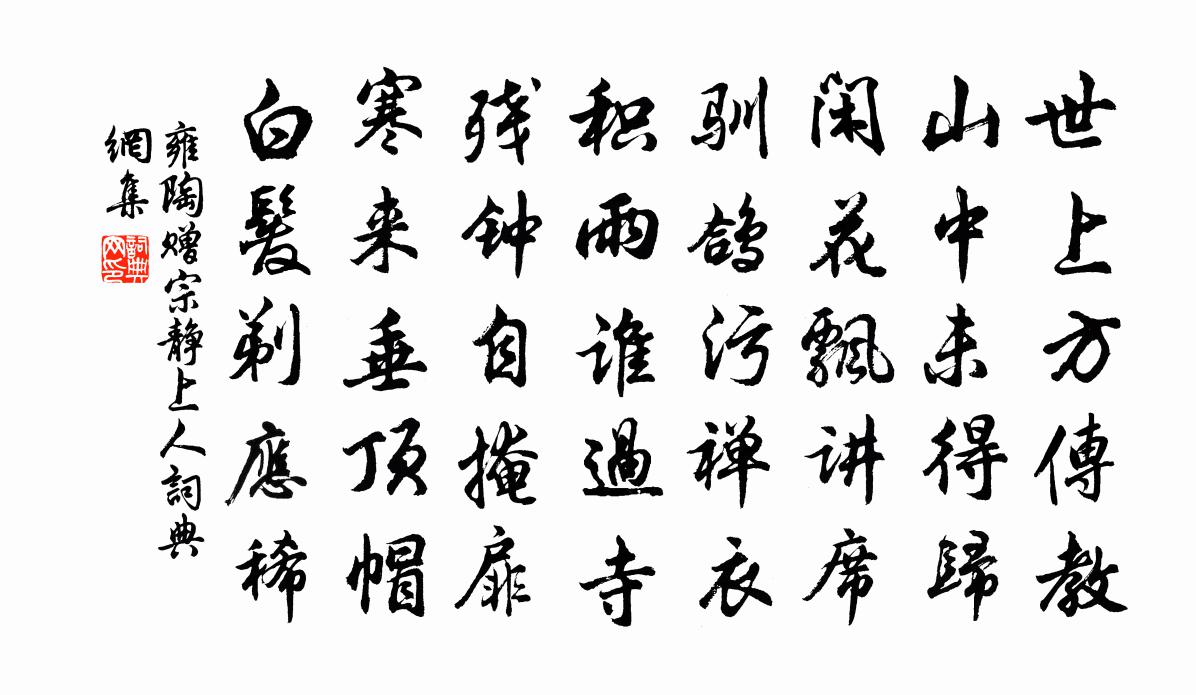 世上方傳教
山中未得歸
闲花飘讲席
驯鸽污禅衣
积雨谁過寺
残钟自掩扉
寒来垂顶帽
白髮剃應稀
雍陶赠宗静上人詞典
網集
詞典
网印